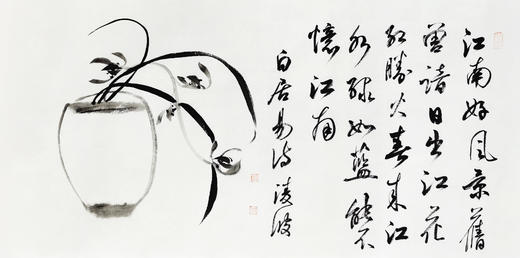 江南好风景旧
曾谙日出江花
红胜火春来江
水绿如蓝能不
忆江南
白居易诗 凌波